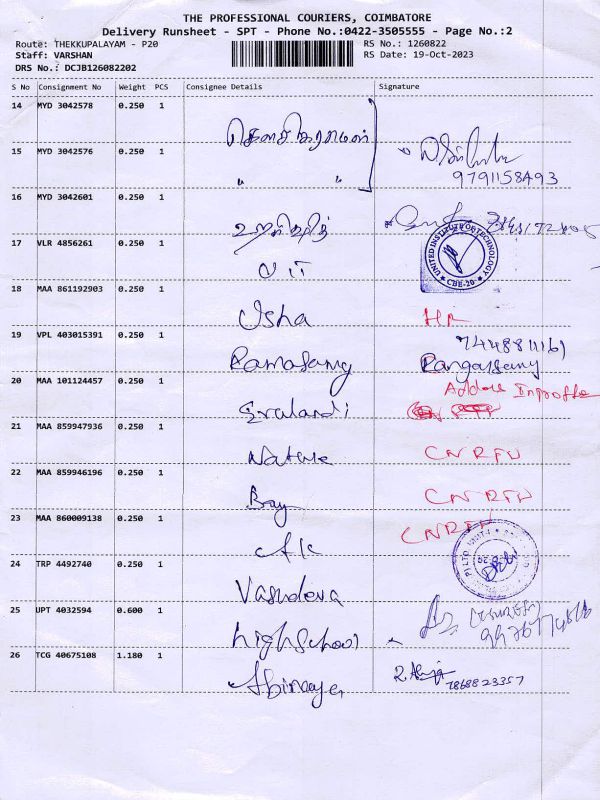 THE PROFESSIONAL COURIERS, COIMBATORE
Delivery Runsheet - SPT - Phone No.:0422-3505555 - Page No.:2
Route: THEKKUPALAYAM - P20 RS No.: 1260822
Staff: VARSHAN RS Date: 19-Oct-2023
DRS No.: DCJB126082202
S No Consignment No Weight PCS Consignee Details Signature
14 MYD 3042578 0.250 1
15 MYD 3042576 0.250 1
" "
9791158493
16 MYD 3042601 0.250 1
17 VLR 4856261 0.250 1
UNITED INSTITUTE OF TECHNOLOGY
CBE-20
18 MAA 861192903 0.250 1
Usha
19 VPL 403015391 0.250 1
7448811161
Ramasamy Rangasamy
20 MAA 101124457 0.250 1
21 MAA 859947936 0.250 1
Nature CNRFU
22 MAA 859946196 0.250 1
Bay CNRFU
23 MAA 860009138 0.250 1
CNRFU
24 TRP 4492740 0.250 1
Vasudeva
25 UPT 4032594 0.600 1
high School
26 TCG 40675108 1.180 1
Abinaya
7868823357